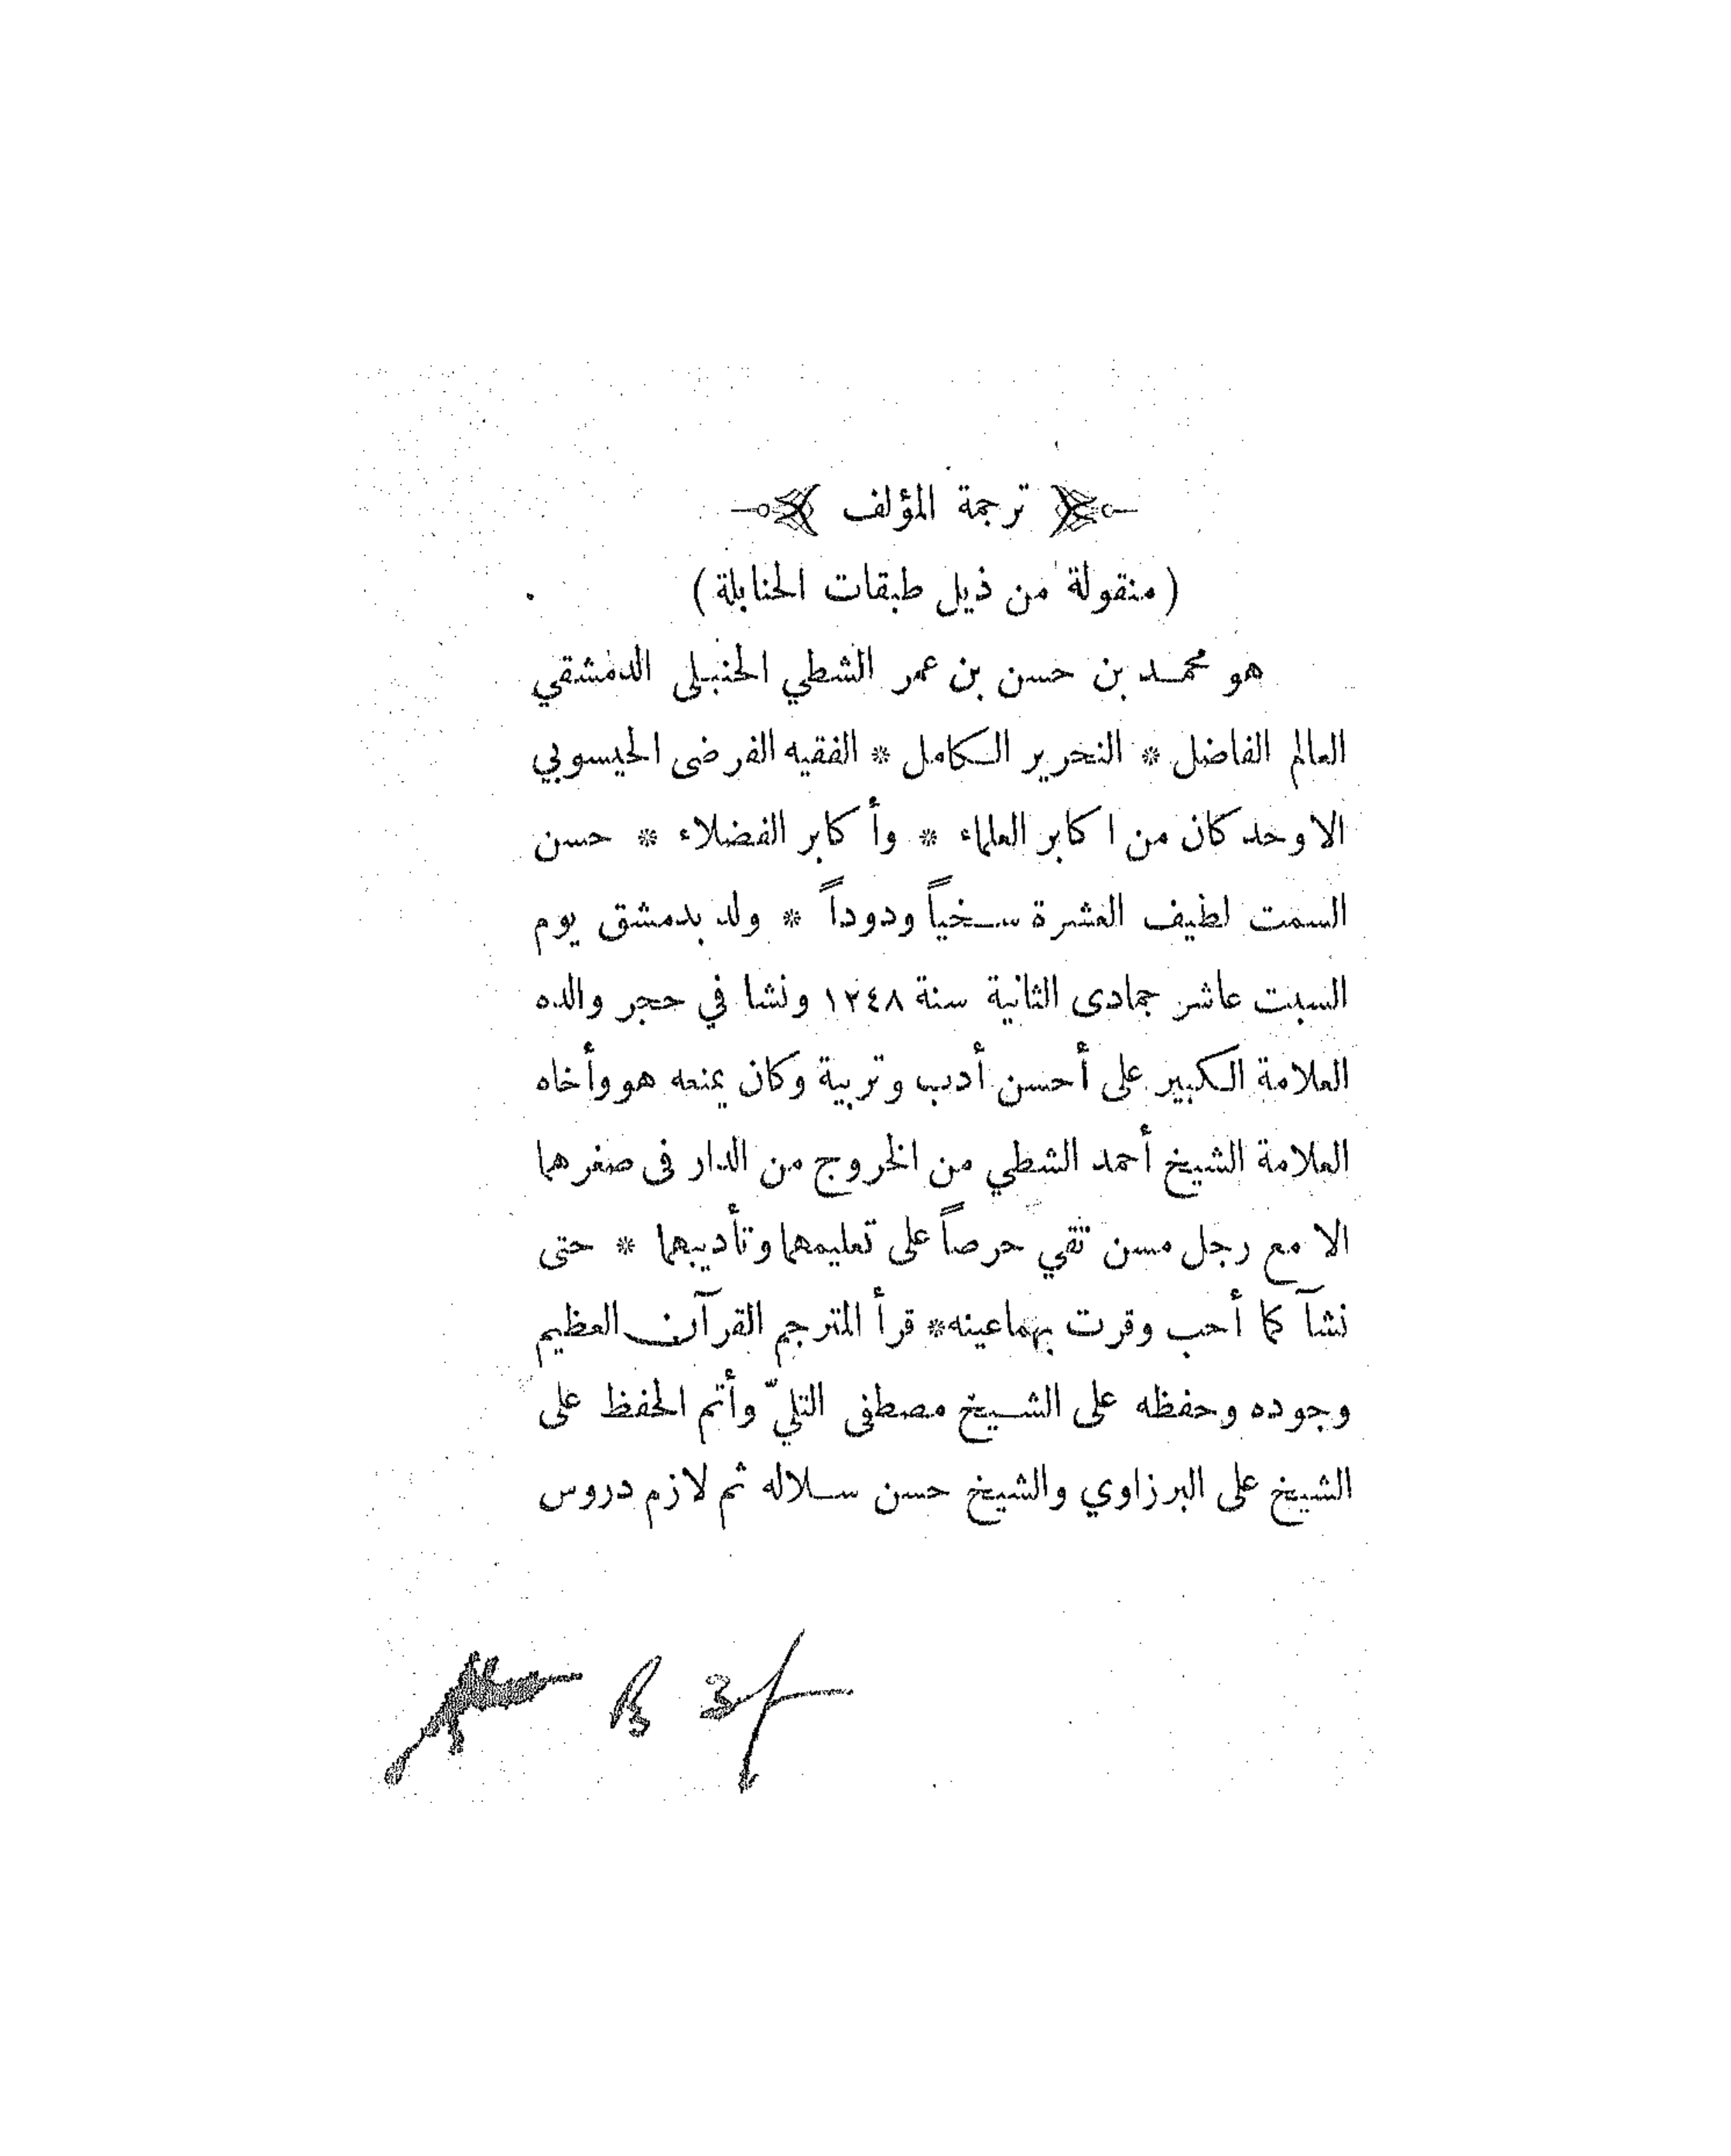 ترجمة المؤلف
( منقولة من ذيل طبقات الحنابلة )
هو محمد بن حسن بن عمر الشطي الحنبلى الدمشقي
العالم الفاضل * النحرير الكامل * الفقيه الفرضى الحيسوبي
الاوحد كان من اكابر العلماء * وأكابر الفضلاء * حسن
السمت لطيف العشرة سخياً ودوداً * ولد بدمشق يوم
السبت عاشر جمادى الثانية سنة ١٢٤٨ ونشا في حجر والده
العلامة الكبير على أحسن أدب وتربية وكان يمنعه هو وأخاه
العلامة الشيخ أحمد الشطي من الخروج من الدار فى صغرهما
الا مع رجل مسن تقي حرصاً على تعليمهما وتأديبهما * حتى
نشآ كما أحب وقرت بهما عينه * قرأ المترجم القرآن العظيم
وجوده وحفظه على الشيخ مصطفى التليّ وأتم الحفظ على
الشيخ على البرزاوي والشيخ حسن سلاله ثم لازم دروس